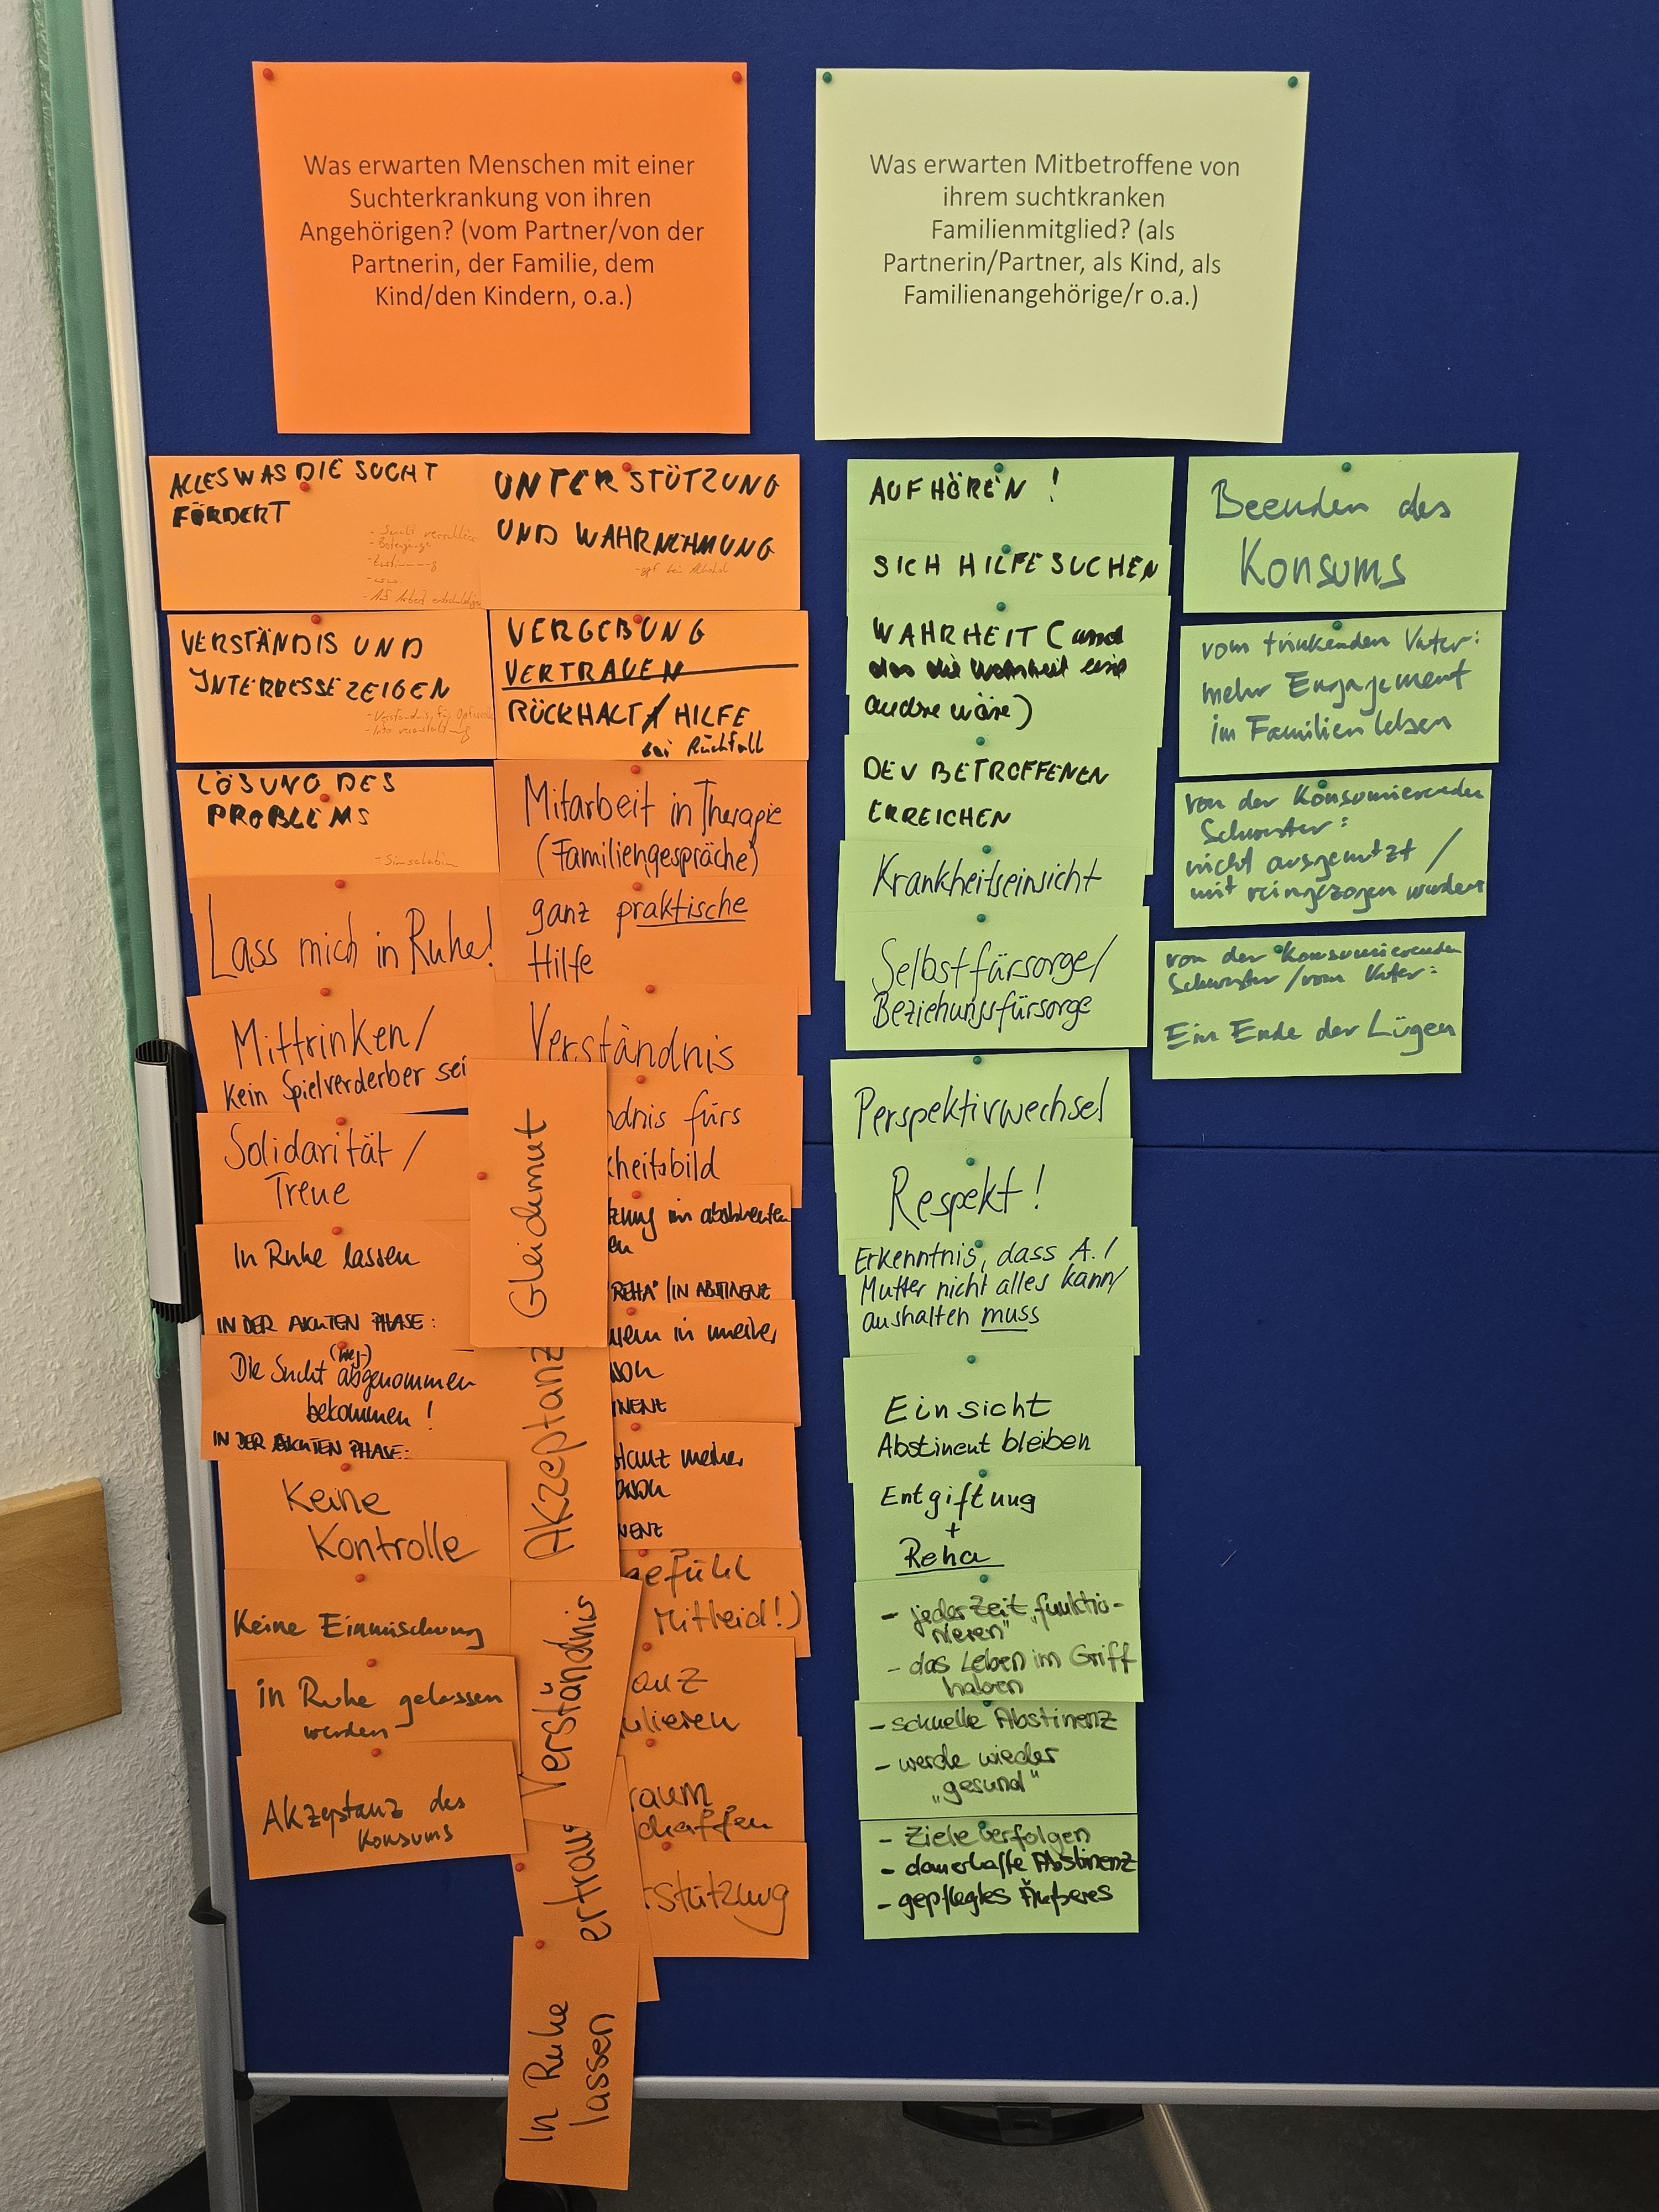 Was erwarten Menschen mit einer
Suchterkrankung von ihren
Angehörigen? (vom Partner/von der
Partnerin, der Familie, dem
Kind/den Kindern, o.a.)
ALLES WAS DIE SUCHT
FÖRDERT
VERSTÄNDIS UND
INTERESSE ZEIGEN
LÖSUNG DES
PROBLEMS
Lass mich in Ruhe!
Mittrinken/
kein Spielverderber sei
Solidarität /
Treue
In Ruhe lassen
IN DER AKUTEN PHASE:
(weg-)
Die Sucht abgenommen
bekommen!
IN DER AKUTEN PHASE:
Keine
Kontrolle
Keine Einmischung
in Ruhe gelassen
werden
Akzeptanz des
Konsums
UNTERSTÜTZUNG
UND WAHRNEHMUNG
VERGEBUNG
VERTRAUEN
RÜCKHALT / HILFE
bei Rückfall
Mitarbeit in Therapie
(Familiengespräche)
ganz praktische
Hilfe
Verständnis
dnis fürs
heitsbild
zung im abstinenten
en
REHA" / IN ABSTINENZ
in meiner
son
INENZ
tanz meiner
rson
NENZ
gefühl
Mitleid!)
anz
ulieren
raum
chaffen
stützung
Gleichmut
Akzeptanz
Verständnis
ertrau
In Ruhe
lassen
Was erwarten Mitbetroffene von
ihrem suchtkranken
Familienmitglied? (als
Partnerin/Partner, als Kind, als
Familienangehörige/r o.a.)
AUFHÖREN !
SICH HILFE SUCHEN
WAHRHEIT (und
das die Wahrheit eine
andere wäre)
DEN BETROFFENEN
ERREICHEN
Krankheitseinsicht
Selbstfürsorge/
Beziehungsfürsorge
Perspektivwechsel
Respekt!
Erkenntnis, dass A. /
Mutter nicht alles kann/
aushalten muss
Einsicht
Abstinent bleiben
Entgiftung
+
Reha
- jederzeit "funktio-
nieren"
- das Leben im Griff
haben
- schnelle Abstinenz
- werde wieder
"gesund"
- Ziele verfolgen
- dauerhafte Abstinenz
- gepflegtes Äußeres
Beenden des
Konsums
vom trinkenden Vater:
mehr Engagement
im Familienleben
von der konsumierenden
Schwester:
nicht ausgenutzt /
mit reingezogen werden
von der konsumierenden
Schwester / vom Vater:
Ein Ende der Lügen